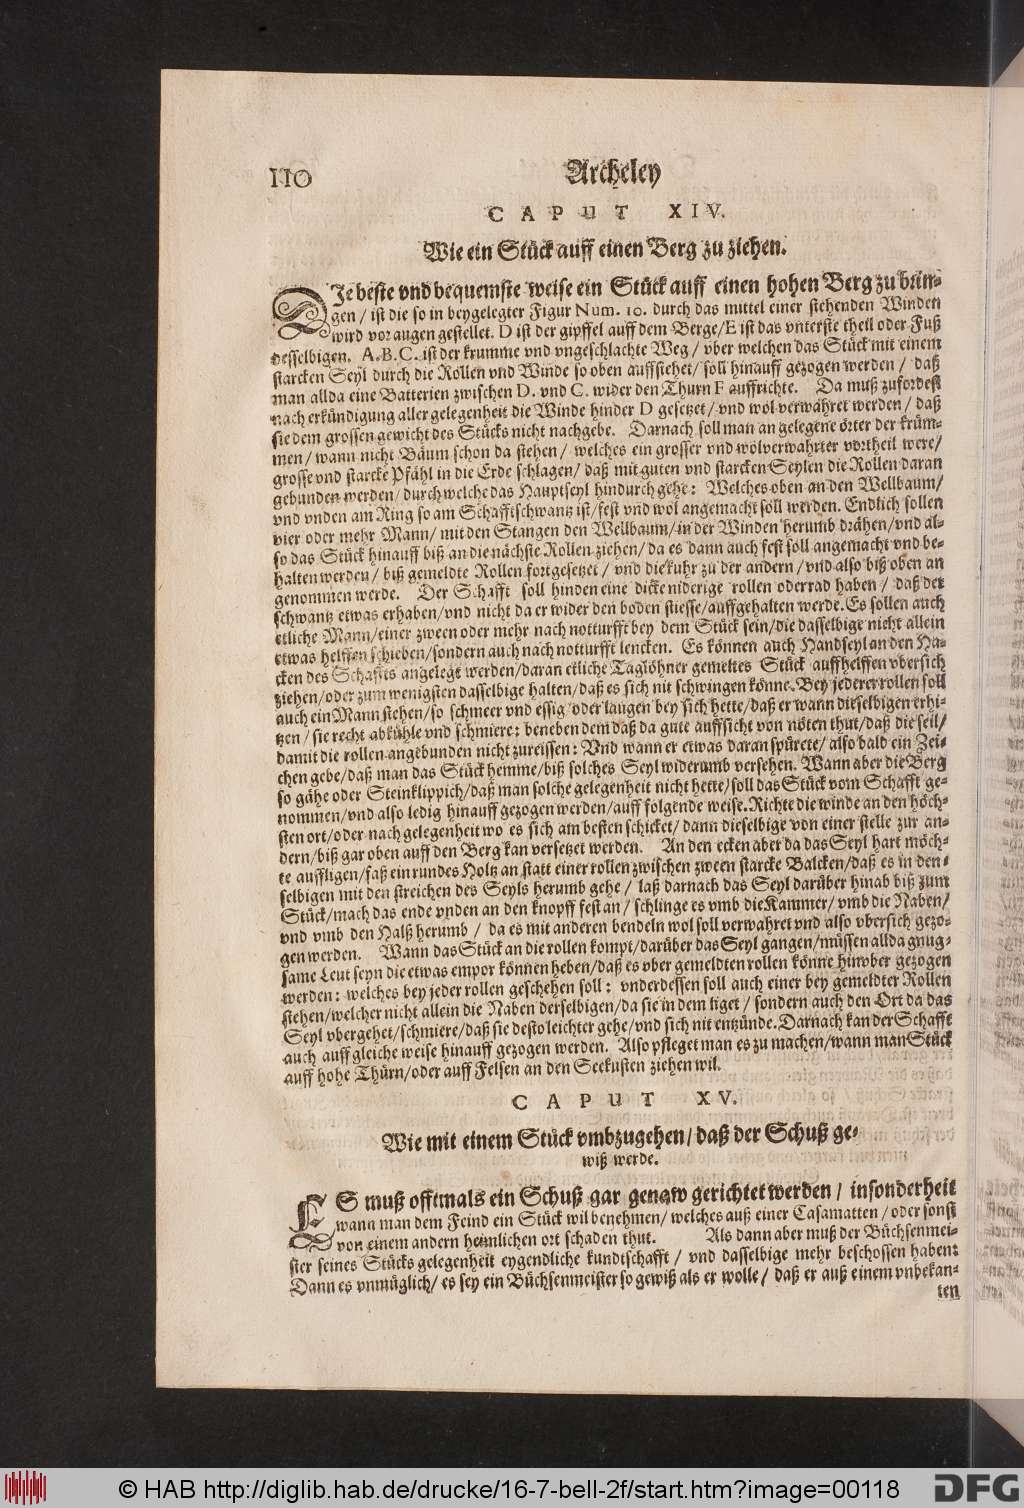 110
Archeley
CAPUT XIV.
Wie ein Stück auff einen Berg zu ziehen.
DJe beste vnd bequemste weise ein Stück auff einen hohen Berg zu brin-
gen / ist die so in beygelegter Figur Num. 10. durch das mittel einer stehenden Winden
wird vor augen gestellet. D ist der gipffel auff dem Berge/E ist das vnterste theil oder Fuß
desselbigen. A. B. C. ist der krumme vnd vngeschlachte Weg / vber welchen das Stück mit einem
starcken Seyl durch die Rollen vnd Winde so oben auffstehet/ soll hinauff gezogen werden / daß
man allda eine Batterien zwischen D. vnd C. wider den Thurn F auffrichte. Da muß zuforderst
nach erkündigung aller gelegenheit die Winde hinder D gesetzet/ vnd wol verwahret werden / daß
sie dem grossen gewicht des Stücks nicht nachgebe. Darnach soll man an gelegene örter der krüm-
men / wann nicht Bäum schon da stehen / welches ein grosser vnd wolverwahrter vortheil were/
grosse vnd starcke Pfähl in die Erde schlagen/ daß mit guten vnd starcken Seylen die Rollen daran
gebunden werden/ durch welche das Hauptseyl hindurch gehe: Welches oben an den Wellbaum/
vnd vnden am Ring so am Schafftschwantz ist/fest vnd wol angemacht soll werden. Endlich sollen
vier oder mehr Mann/ mit den Stangen den Wellbaum/in der Winden herumb drähen/vnd al-
so das Stück hinauff biß an die nächste Rollen ziehen/da es dann auch fest soll angemacht vnd be-
halten werden / biß gemeldte Rollen fortgesetzet / vnd die kuhr zu der andern / vnd also biß oben an
genommen werde. Der Schafft soll hinden eine dicke niderige rollen oder rad haben / daß der
schwantz etwas erhaben/vnd nicht da er wider den boden stiesse/auffgehalten werde. Es sollen auch
etliche Mann/einer zween oder mehr nach notturfft bey dem Stück sein/die dasselbige nicht allein
etwas helffen schieben/sondern auch nach notturfft lencken. Es können auch Handseyl an den Ha-
cken des Schaffts angelegt werden/daran etliche Taglöhner gemeltes Stück auffhelffen vbersich
ziehen/oder zum wenigsten dasselbige halten/daß es sich nit schwingen könne. Bey jederer rollen soll
auch ein Mann stehen/so schmeer vnd essig oder laugen bey sich hette/daß er wann dieselbigen erhi-
tzen / sie recht abkühle vnd schmiere: beneben dem daß da gute auffsicht von nöten thut/daß die seil/
damit die rollen angebunden nicht zureissen: Vnd wann er etwas daran spürete/ also bald ein Zei-
chen gebe/daß man das Stück hemme/biß solches Seyl widerumb versehen. Wann aber die Berg
so gähe oder Steinklippich/daß man solche gelegenheit nicht hette/soll das Stück vom Schafft ge-
nommen/vnd also ledig hinauff gezogen werden/auff folgende weise. Richte die winde an den höch-
sten ort/oder nach gelegenheit wo es sich am besten schicket/ dann dieselbige von einer stelle zur an-
dern/biß gar oben auff den Berg kan versetzet werden. An den ecken aber da das Seyl hart möch-
te auffligen/faß ein rundes Holtz an statt einer rollen zwischen zween starcke Balcken/daß es in den-
selbigen mit den streichen des Seyls herumb gehe / laß darnach das Seyl darüber hinab biß zum
Stück/mach das ende vnden an den knopff fest an / schlinge es vmb die Kammer/ vmb die Naben/
vnd vmb den Halß herumb / da es mit anderen bendeln wol soll verwahret vnd also vbersich gezo-
gen werden. Wann das Stück an die rollen kompt/darüber das Seyl gangen/müssen allda gnug-
same Leut seyn die etwas empor können heben/daß es vber gemeldten rollen könne hinvber gezogen
werden: welches bey jeder rollen geschehen soll: vnderdessen soll auch einer bey gemeldter Rollen
stehen/welcher nicht allein die Naben derselbigen/da sie in dem liget / sondern auch den Ort da das
Seyl vbergehet/schmiere/daß sie desto leichter gehe/vnd sich nit entzünde. Darnach kan der Schafft
auch auff gleiche weise hinauff gezogen werden. Also pfleget man es zu machen/wann man Stück
auff hohe Thürn/oder auff Felsen an den Seekusten ziehen wil.
CAPUT XV.
Wie mit einem Stück vmbzugehen/ daß der Schuß ge-
wiß werde.
ES muß offtmals ein Schuß gar genaw gerichtet werden / insonderheit
wann man dem Feind ein Stück wil benehmen/ welches auß einer Casamatten / oder sonst
von einem andern heimlichen ort schaden thut. Als dann aber muß der Büchsenmei-
ster seines Stücks gelegenheit eygendliche kundtschafft / vnd dasselbige mehr beschossen haben:
Dann es vnmüglich/ es sey ein Büchsenmeister so gewiß als er wolle / daß er auß einem vnbekan-
ten
© HAB http://diglib.hab.de/drucke/16-7-bell-2f/start.htm?image=00118
DFG